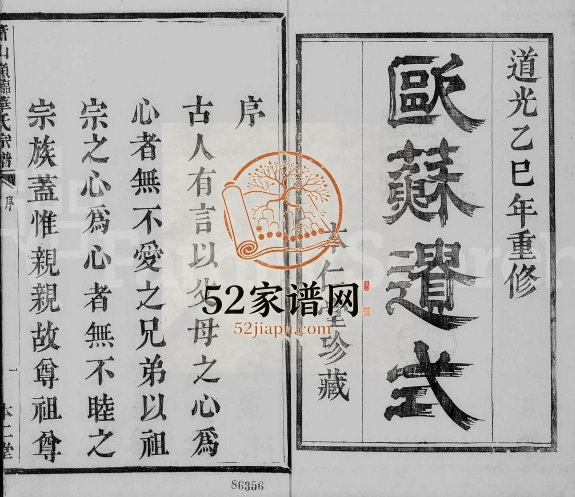 道光乙巳年重修
歐蘇遺式
本仁堂珍藏
序
古人有言以父母之心為
心者無不愛之兄弟以祖
宗之心為心者無不睦之
宗族蓋惟親親故尊祖尊
蕭山漁臨華氏宗譜
序
一
本仁堂
52家谱网
52jiapu.com
86356